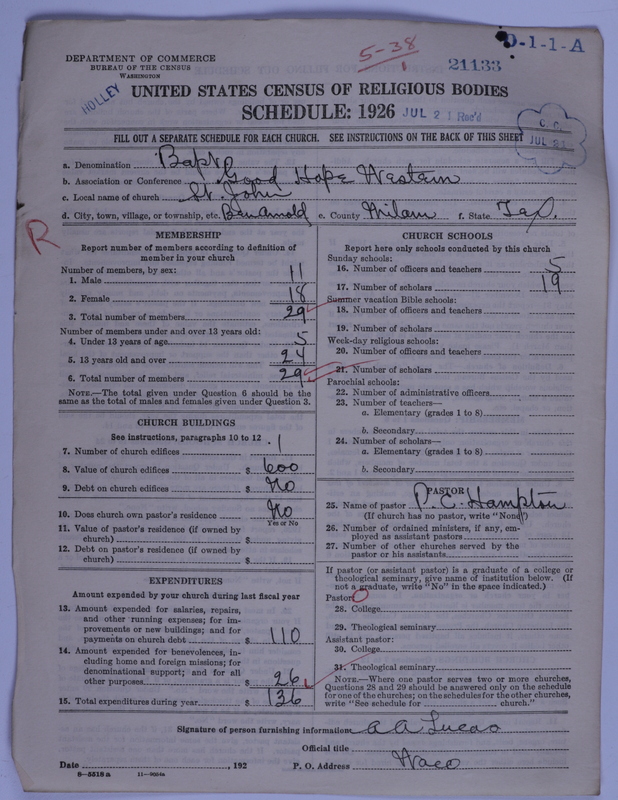 DEPARTMENT OF COMMERCE
BUREAU OF THE CENSUS
WASHINGTON
HOLLEY
5-38
21133
D-1-1-A
UNITED STATES CENSUS OF RELIGIOUS BODIES
SCHEDULE: 1926
JUL 21 Rec'd
C. C.
JUL 21
FILL OUT A SEPARATE SCHEDULE FOR EACH CHURCH. SEE INSTRUCTIONS ON THE BACK OF THIS SHEET
a. Denomination Bapt
b. Association or Conference Good Hope Western
c. Local name of church St. John
d. City, town, village, or township, etc. Ben Arnold e. County Milam f. State Tex.
R
MEMBERSHIP
Report number of members according to definition of
member in your church
Number of members, by sex:
1. Male 11
2. Female 18
3. Total number of members 29
Number of members under and over 13 years old:
4. Under 13 years of age 5
5. 13 years old and over 24
6. Total number of members 29
NOTE.—The total given under Question 6 should be the
same as the total of males and females given under Question 3.
CHURCH BUILDINGS
See instructions, paragraphs 10 to 12
7. Number of church edifices 1
8. Value of church edifices $ 600
9. Debt on church edifices $ No
10. Does church own pastor's residence No
Yes or No
11. Value of pastor's residence (if owned by
church) $
12. Debt on pastor's residence (if owned by
church) $
EXPENDITURES
Amount expended by your church during last fiscal year
13. Amount expended for salaries, repairs,
and other running expenses; for im-
provements or new buildings; and for
payments on church debt $ 110
14. Amount expended for benevolences, in-
cluding home and foreign missions; for
denominational support; and for all
other purposes $ 26
15. Total expenditures during year $ 136
CHURCH SCHOOLS
Report here only schools conducted by this church
Sunday schools:
16. Number of officers and teachers 5
17. Number of scholars 19
Summer vacation Bible schools:
18. Number of officers and teachers
19. Number of scholars
Week-day religious schools:
20. Number of officers and teachers
21. Number of scholars
Parochial schools:
22. Number of administrative officers
23. Number of teachers—
a. Elementary (grades 1 to 8)
b. Secondary
24. Number of scholars—
a. Elementary (grades 1 to 8)
b. Secondary
PASTOR
25. Name of pastor P. C. Hampton
(If church has no pastor, write "None")
26. Number of ordained ministers, if any, em-
ployed as assistant pastors
27. Number of other churches served by the
pastor or his assistants
If pastor (or assistant pastor) is a graduate of a college or
theological seminary, give name of institution below. (If
not a graduate, write "No" in the space indicated.)
Pastor: O
28. College
29. Theological seminary
Assistant pastor:
30. College
31. Theological seminary
NOTE.—Where one pastor serves two or more churches,
Questions 28 and 29 should be answered only on the schedule
for one of the churches; on the schedules for the other churches,
write "See schedule for church."
Signature of person furnishing information A A Lucas
Official title
Date , 192 P. O. Address Waco
8—5518a 11—9034a